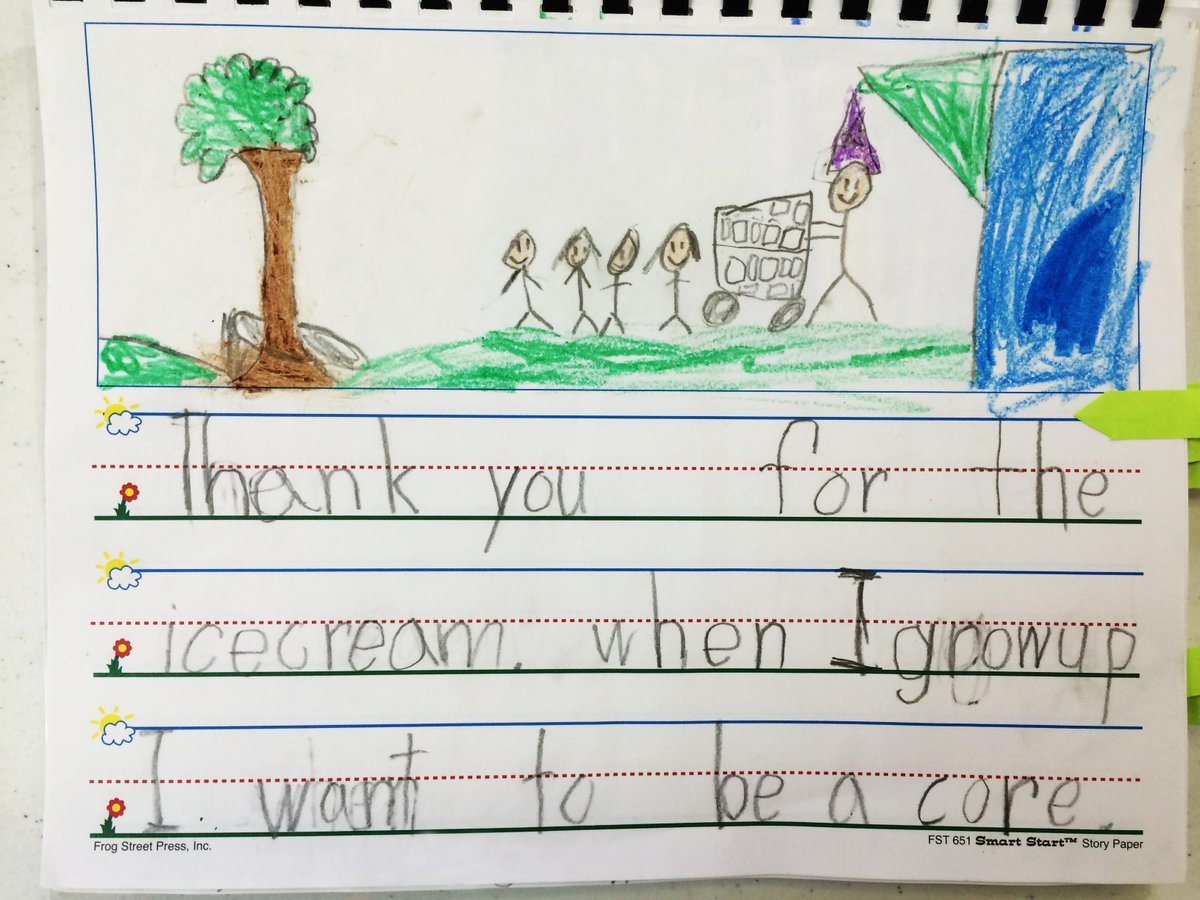 Thank you for the
icecream. when I growup
I want to be a core.
Frog Street Press, Inc.
FST 651 Smart Start™ Story Paper